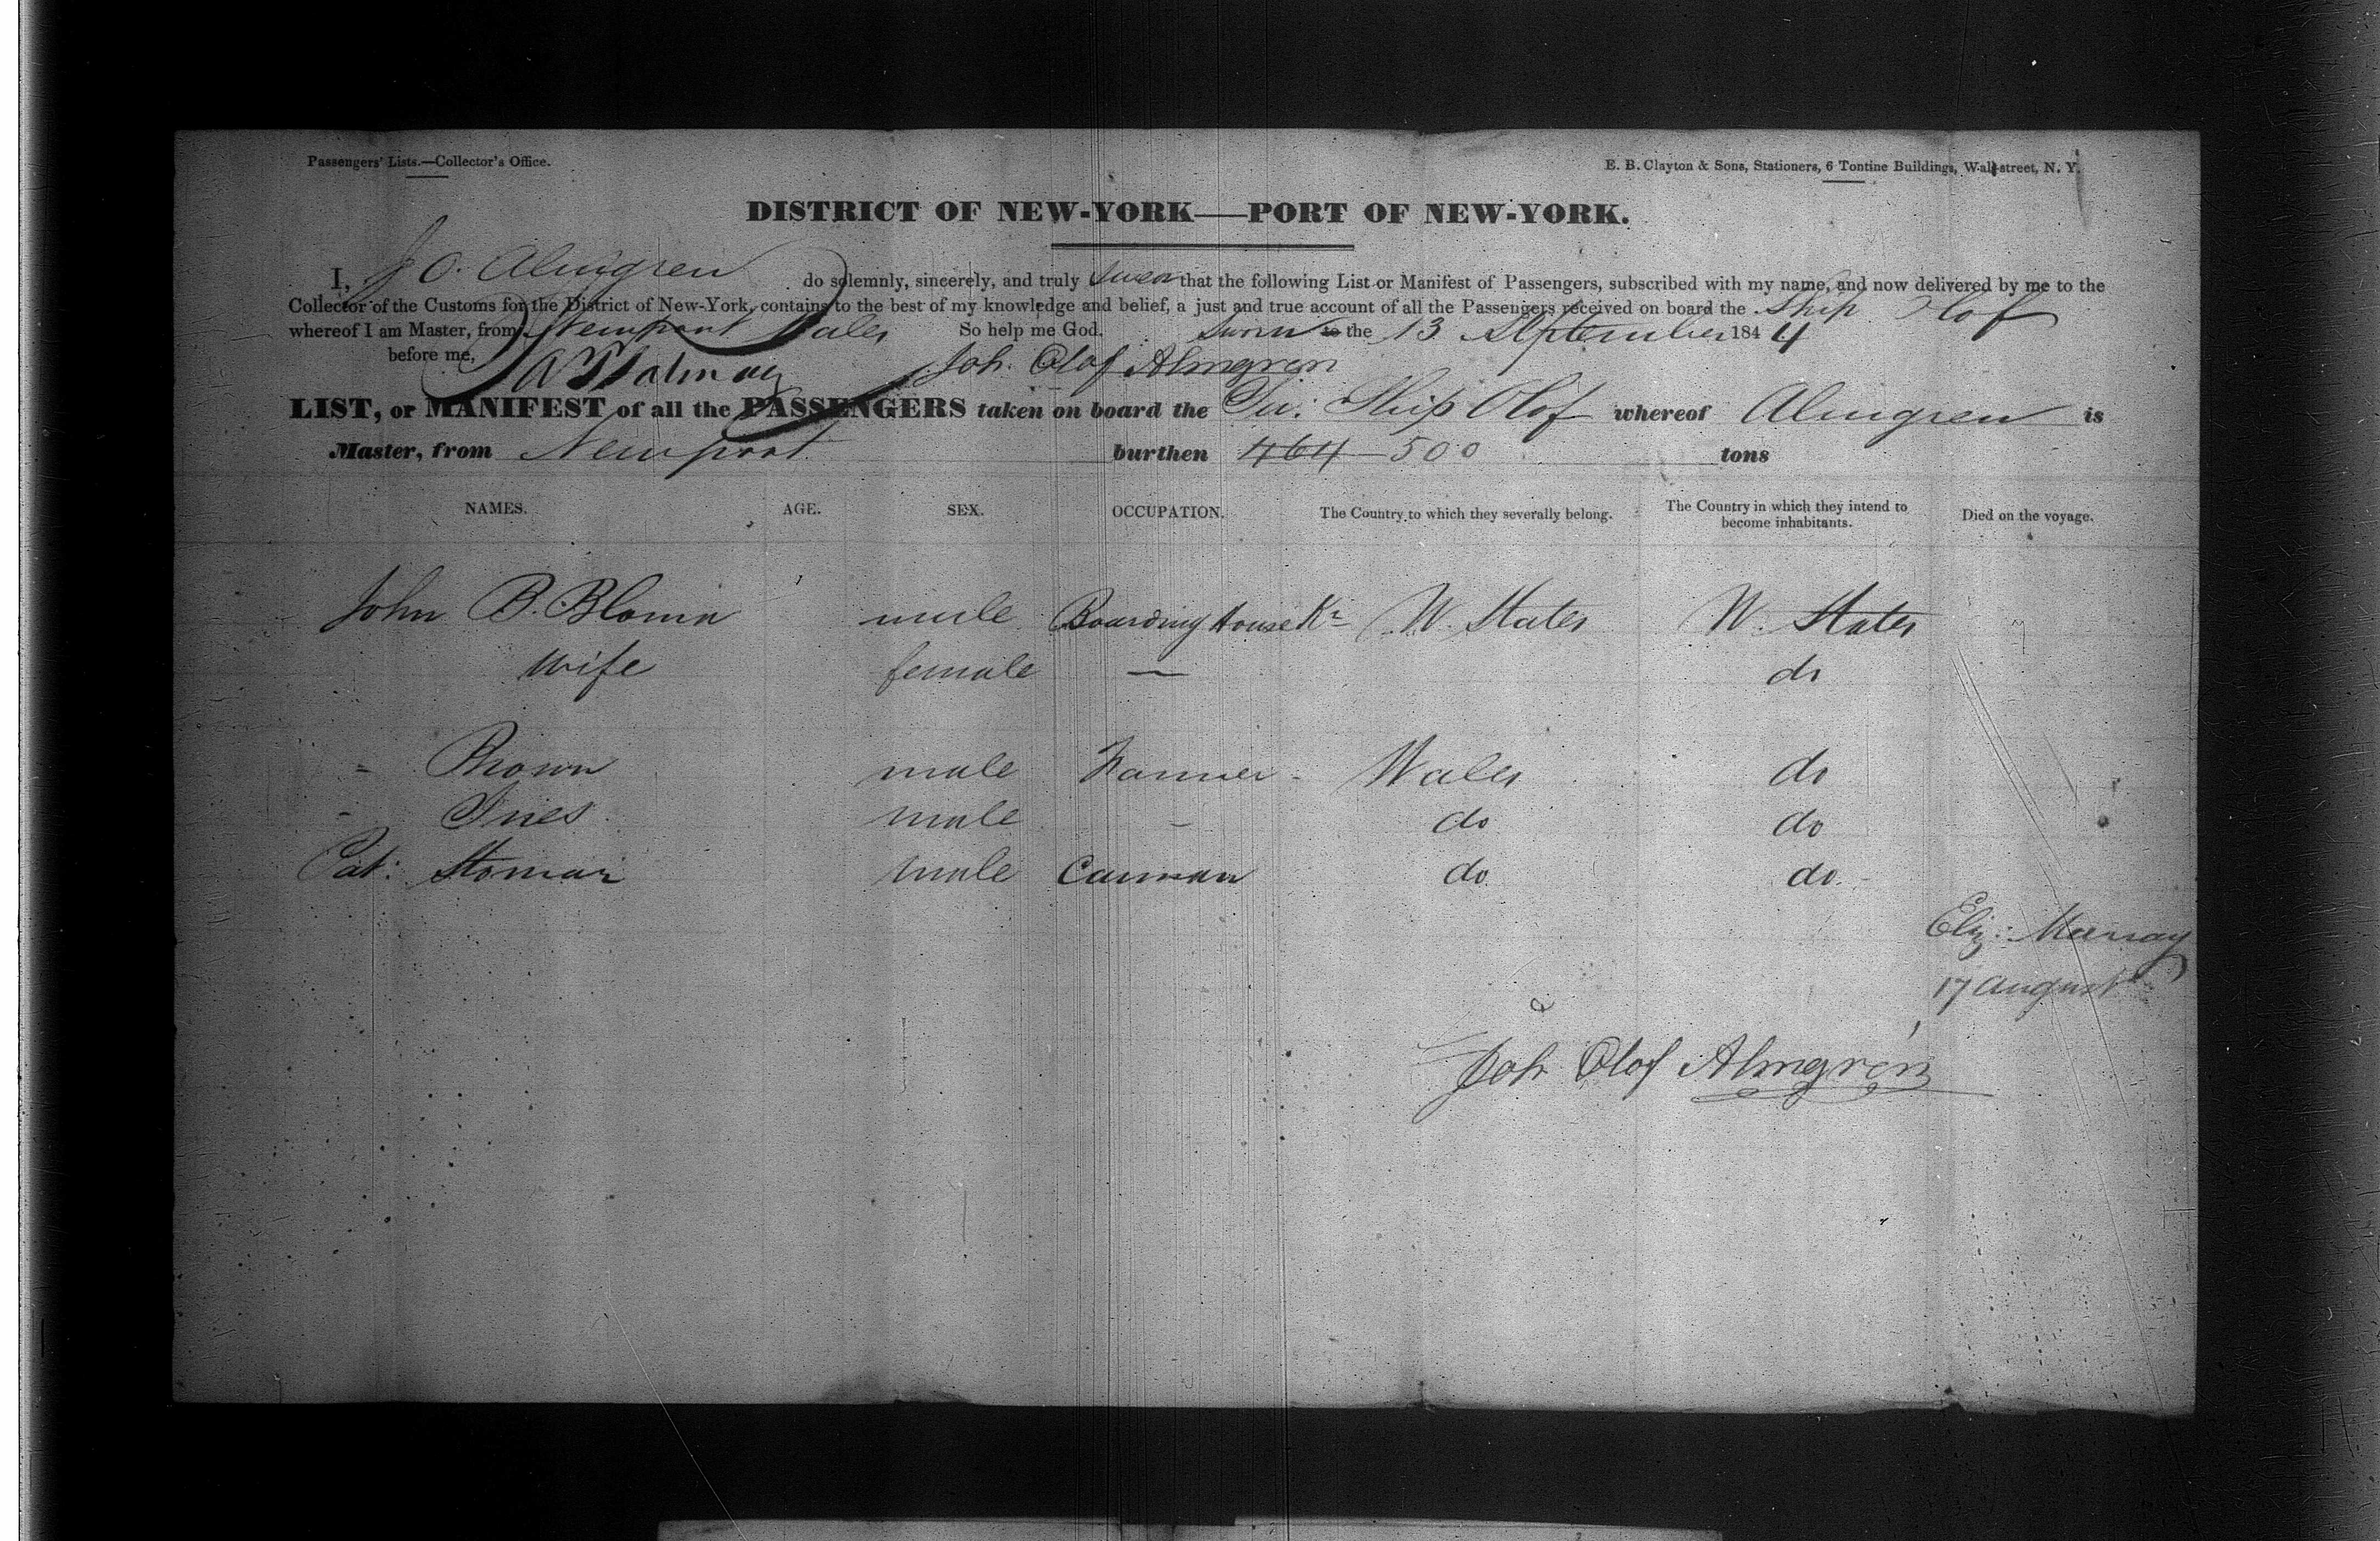 Passengers' Lists.—Collector's Office.
E. B. Clayton & Sons, Stationers, 6 Tontine Buildings, Wall-street, N. Y.
DISTRICT OF NEW-YORK—PORT OF NEW-YORK.
I, J O. Almgren do solemnly, sincerely, and truly swear that the following List or Manifest of Passengers, subscribed with my name, and now delivered by me to the
Collector of the Customs for the District of New-York, contains to the best of my knowledge and belief, a just and true account of all the Passengers received on board the Ship Olof
whereof I am Master, from Newport Wales So help me God. Sworn to the 13 September 1844
before me, Joh. Olof Almgren
LIST, or MANIFEST of all the PASSENGERS taken on board the Sw: Ship Olof whereof Almgren is
Master, from Newport burthen 464 500 tons
NAMES. AGE. SEX. OCCUPATION. The Country to which they severally belong. The Country in which they intend to become inhabitants. Died on the voyage.
John B. Blomn male Boarding House Kr U. States U. States
wife female — do
" Brown male Farmer - Wales do
" male - do do
Pat: male Carman do do
Eliz: Murray
17 August
Joh Olof Almgrén